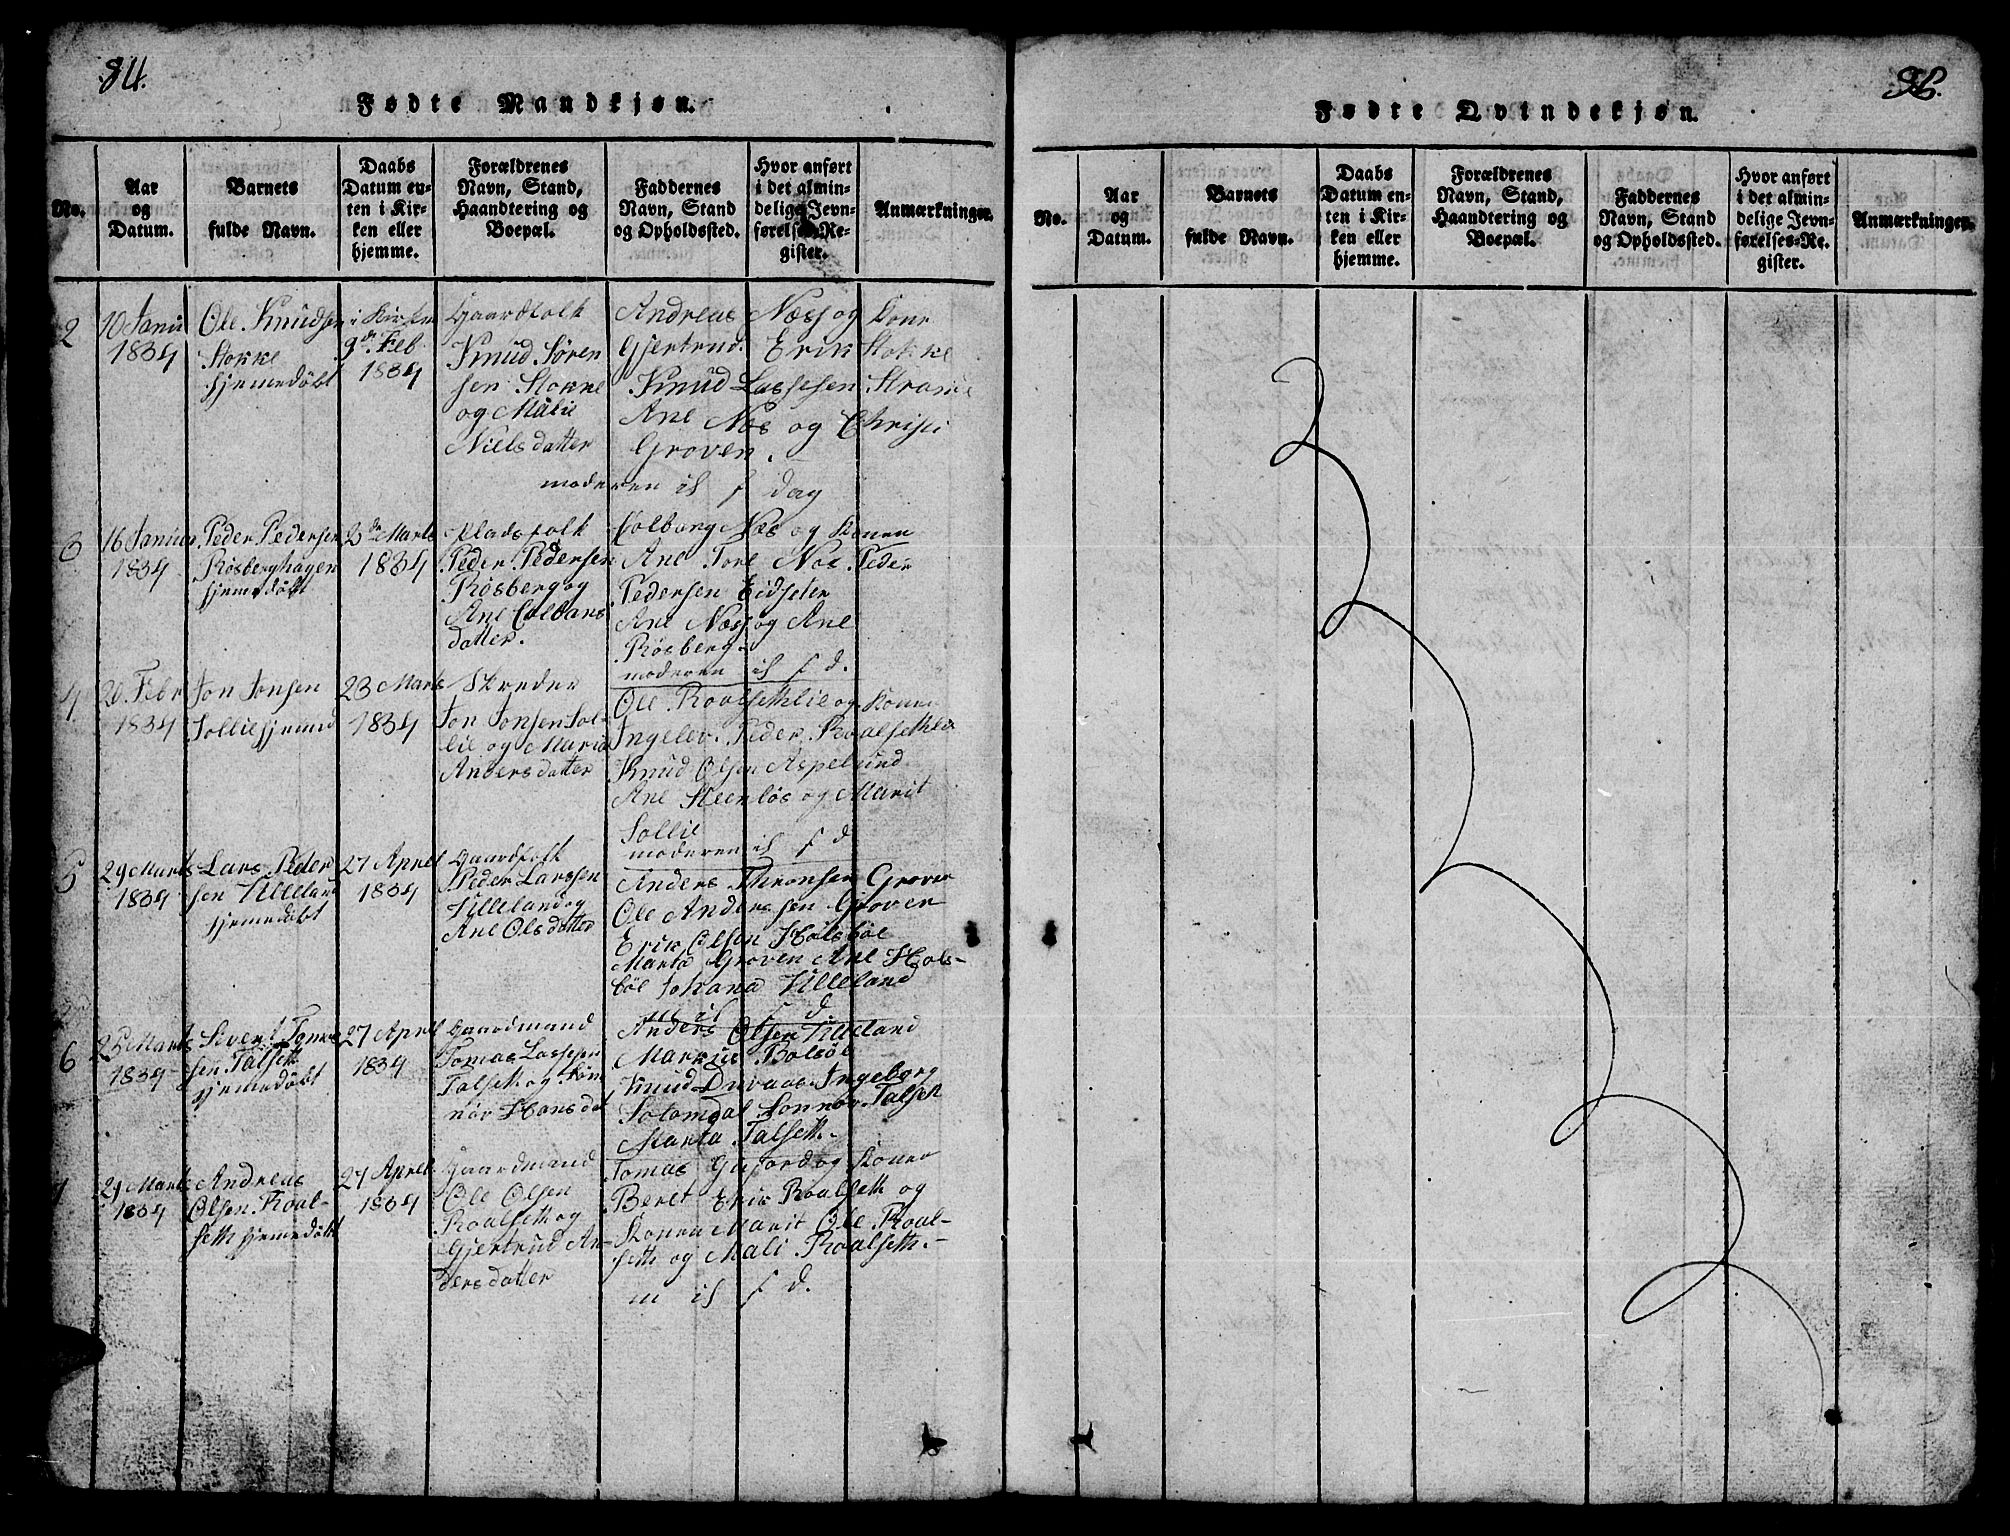 84.
Fødte Mandkjøn.
No.
Aar
og
Datum.
Barnets
fulde Navn.
Daabs
Datum en-
ten i Kir-
ken eller
hjemme.
Forældrenes
Navn, Stand,
Haandtering og
Boepæl.
Faddernes
Navn, Stand
og Opholdssted.
Hvor anført
i det almin-
delige Jevn-
førelses-Re-
gister.
Anmærkninger.
2
10 Janu
1834
Ole Knudsen
Stokke
hjemedøbt
i Kirken
9de Feb
1834
Gaardfolk
Knud Søren
sen Stokke
og Mali
Nielsdatter
Andreas Næss og Kone
Gjertrud Erik Stokke
Knud Lassesen Strande
Ane Næs og Christi
Groven.
moderen il f dag
3
16 Januar
1834
Peder Pedersen
Røsberghagen
hjemedøbt
2de Marts
1834
Pladsfolk
Peder Pedersen
Røsberg og
Ane Colbans
datter.
Colborg Næs og Konen
Ane Tore Næs Peder
Pedersen Eidseter
Ane Næss og Ane
Røsberg
moderen il f d.
4
20 Febr
1834
Jon Jonsen
Sollie hjemed
23 Marts
1834
Skreder
Jon Jonsen Sol-
lie og Maria
Andersdatter
Ole Roalsethlie og Kone
Ingeler Peder Roalsethlie
Knud Olsen Aspelund
Ane Steenløs og Marit
Sollie
moderen il f d
5
29 Marts
1834
Lars Peder
sen Tilleland
hjemedøbt
27 April
1834
Gaardfolk
Peder Larssen
Tilleland og
Ane Olsdatter
Anders Thronsen Groven
Ole Andersen Groven
Erik Olsen Holsbøe
Marta Groven Ane Hols-
bøe Johana Tilleland
m il f d
6
25 Marts
1834
Sivert Tomas
sen Talseth
hjemedøbt
27 April
1834
Gaardmand
Tomas Lassesen
Talseth og
nør Hansdat
Anders Olsen Tilleland
Markus Bolsøe
Knud Ingeborg
Solemdal Konnør Talseth
Marta Talseth.
7
29 Marts
1834
Andreas
Olsen Roal-
seth hjemedøbt
27 April
1834
Gaardmand
Ole Olsen
Roalseth og
Gjertrud An-
dersdatter
Tomas Gujord og Konen
Beret Erik Roalseth og
Konen Marit Ole Roal-
seth og Mali Roalseth.
m il f d.
Fødte Qvindekjøn.
No.
Aar
og
Datum.
Barnets
fulde Navn.
Daabs
Datum en-
ten i Kir-
ken eller
hjemme.
Forældrenes
Navn, Stand,
Haandtering og
Boepæl.
Faddernes
Navn, Stand
og Opholdssted.
Hvor anført
i det almin-
delige Jevn-
førelses-Re-
gister.
Anmærkninger.